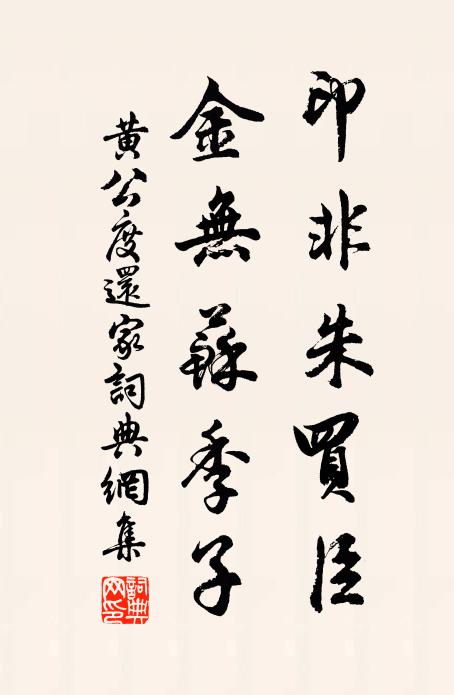 印非朱買臣
金無蘇季子
黃公度還家詞典網集
詞典網印